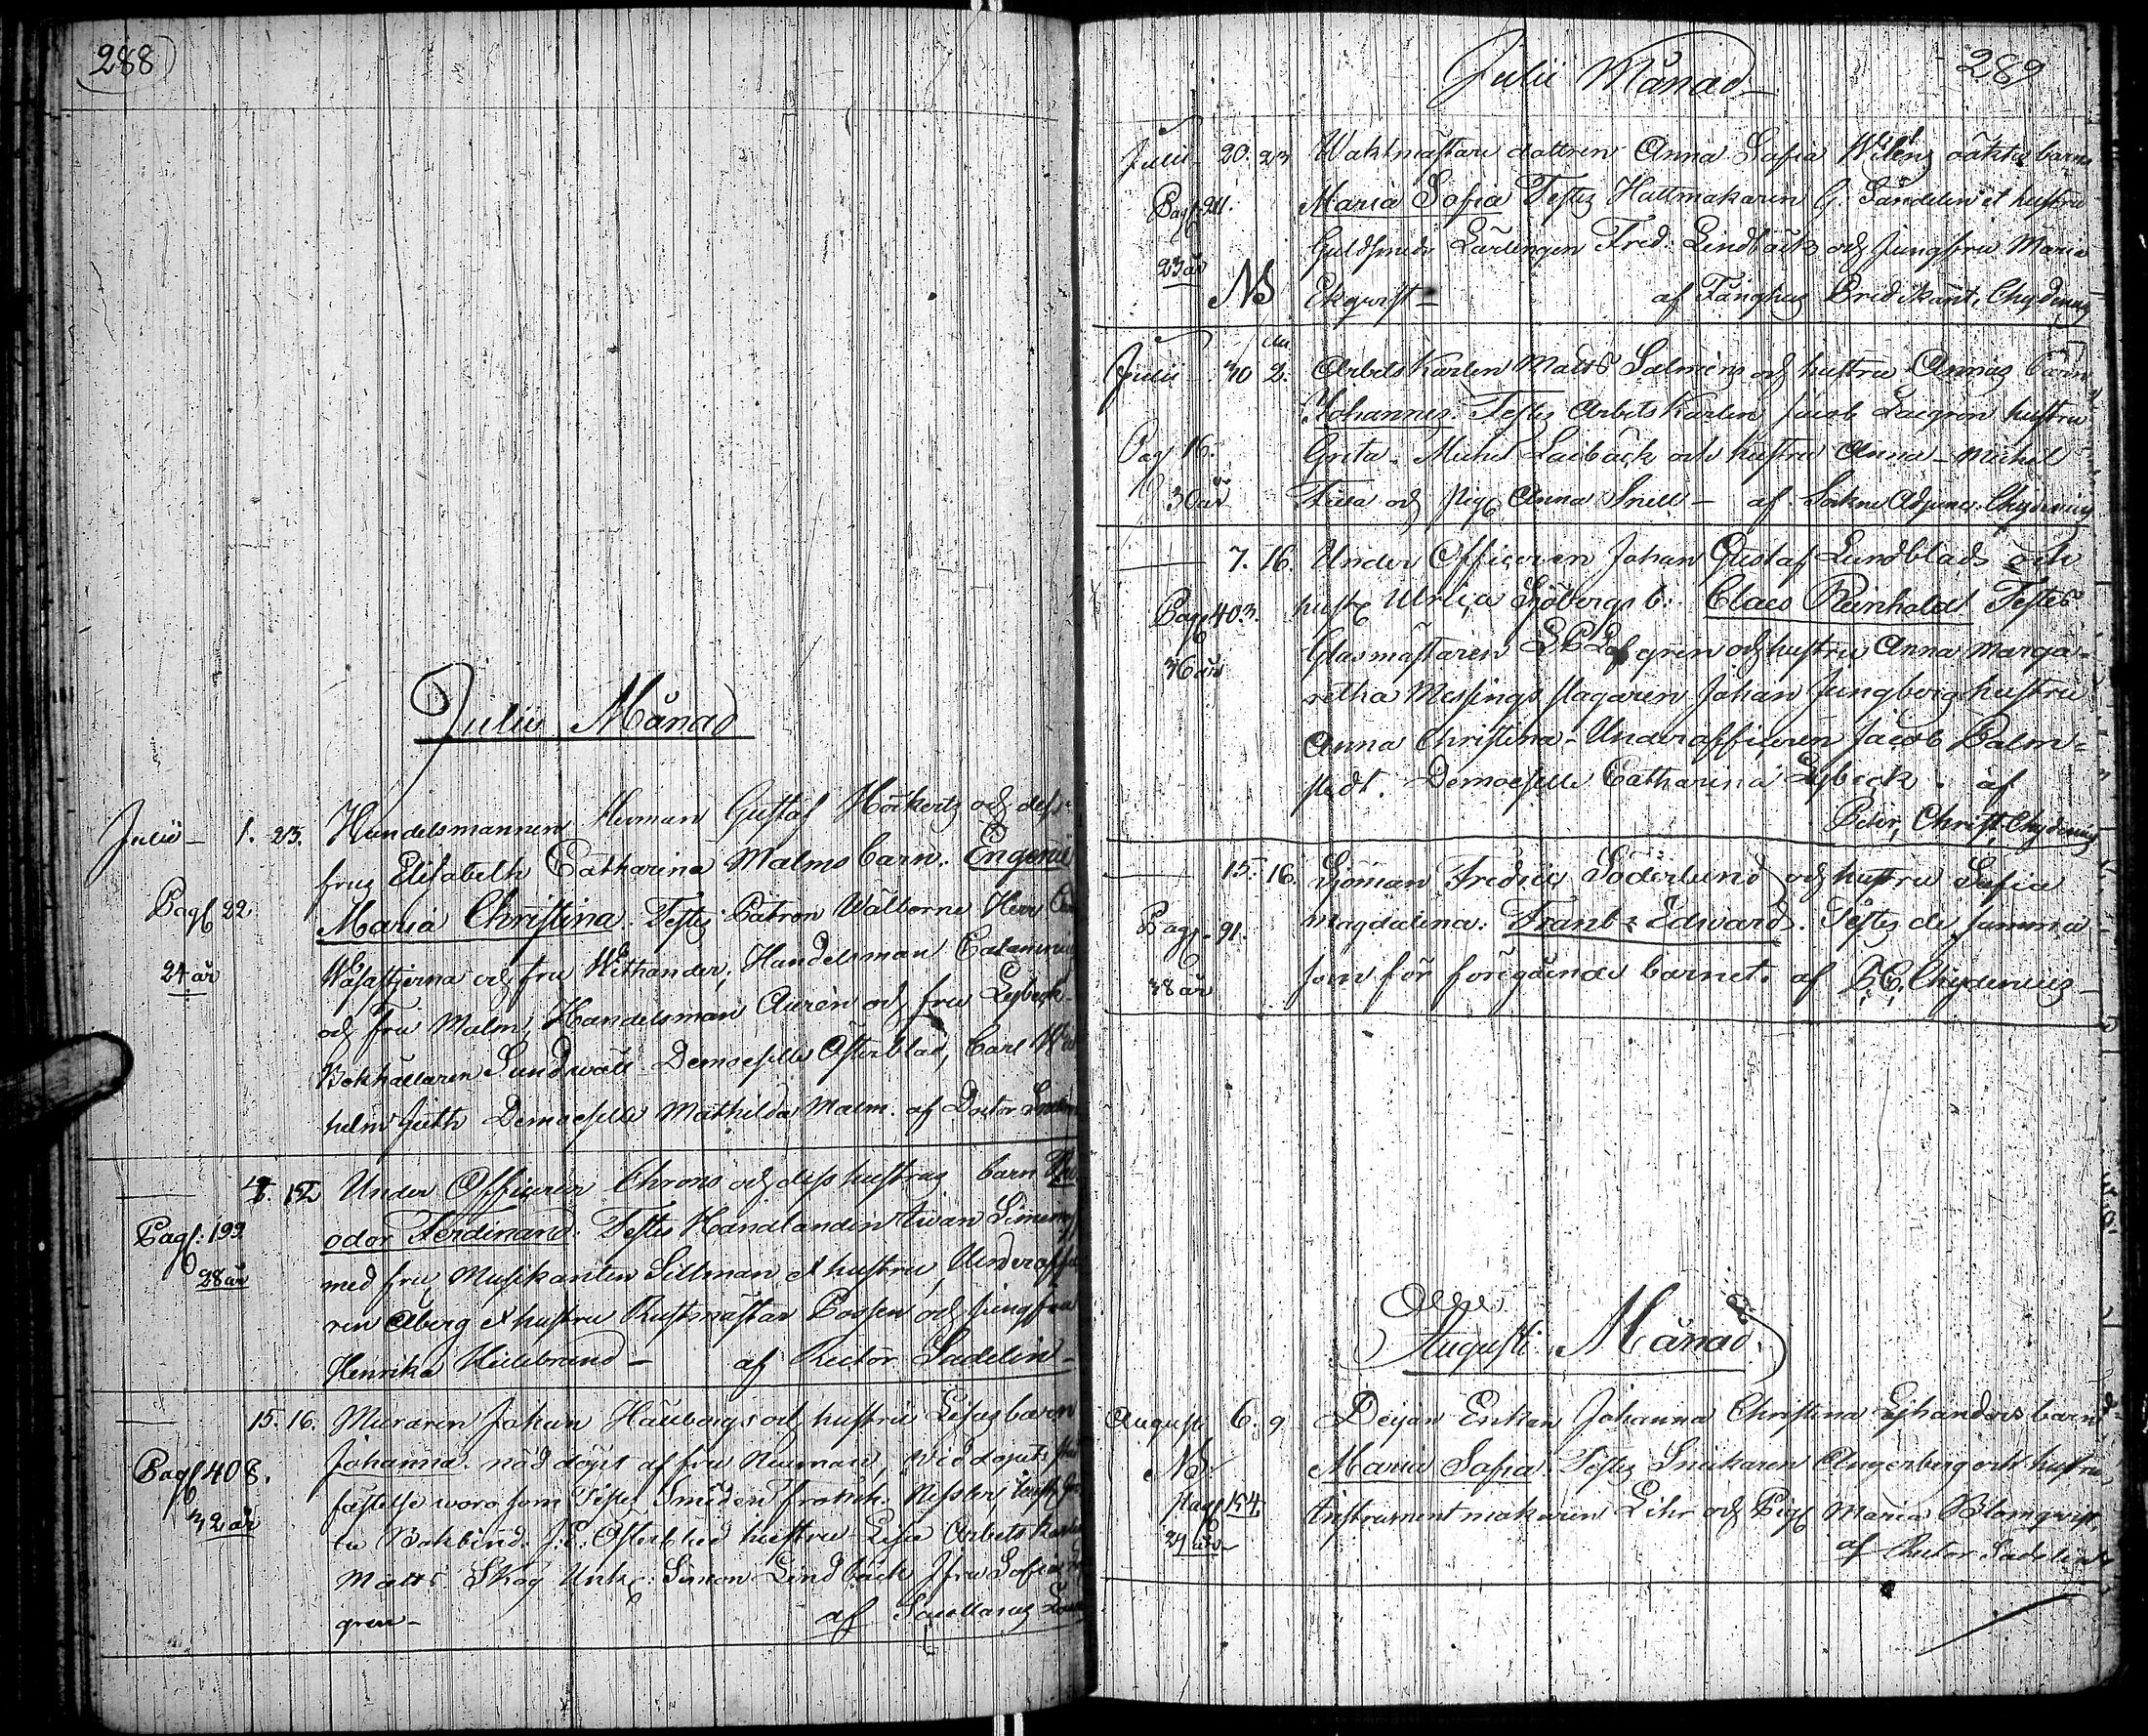 288
Julii Månad
Julii - 1. 23. Handelsmannen Herman Gustaf Höckertz och dess
frus Elisabeth Catharina Malms barn. Eugenie
Pag: 22. Maria Christina. Testes Patron Wälborne Herr
24 år Wasastjerna och fru Withander, Handelsman
och Fru Malm, Handelsman Aurén och fru Lybeck
Bokhållaren Sundwall Demoeselle Österblad, Carl
helm Juth Demoeselle Mathilda Malm. af Doctor
12 Under Officeren Chrons och dess hustrus barn
Pag: 199. odor Ferdinand. Testes Handlanden Iwan
28 år med fru, Musikanten Sillman et hustru,
ren Åberg et hustru Rustmästar Possen och Jungfru
Henrika Hildebrand - af Rector Sadelin -
15. 16. Muraren Johan Haubergs och hustru Lisas barn
Pag 408. Johanna. nöd döpt af fru Neuman, wid dopets
32 år fästelse woro som Testes Smeden Nessler,
Bokbind. J. E. Österblad hustru Lisa Arbets
Matts Skog Simon Lindbäck Jfru Sofia
gren - af
289
Julii Månad
Julii - 20. 23 Waktmästare dottren Anna Sofia oäkta barn
Pag: 211. Maria Sofia Testes Hattmakaren G. Sandelin et hustru
23 år Guldsmeds Lärlingen Fred. Lindbäck och Jungfru Maria
NB Ekqwist - af Fånghus Predikant, Chydenius
Julii 30 2. Arbets Karlen Matts Salmens och hustru Annas barn
Johannes. Testes Arbets Karlen Jacob hustru
Pag 16. Greta. Michel Laibäck och hustru Anna - Michel
36 år och pig. Anna Snell - af Sokne Adjunct. Chydenius
7. 16. Under Officeren Johan Gustaf Lundblads och
Pag 403. hust. Ulrica Sjöbergs b: Claes Reinhold Testes
36 år Glasmästaren Löfgren och hustru Anna Marga-
retha Messingsslagaren Johan Ljungberg hustru
Anna Christina - Underofficeren Jacob Palm-
stedt. Demoeselle Catharina Lybeck. af
Petr, Christ, Chydenius
15. 16. Sjöman Fredric Söderlund och hustru Sofia
Pag. 91. Magdalena: Frans Edward. Testes de samma
38 år som för föregående barnet. af P. C. Chydenius -
Augusti Månad.
Augusti 6. 9 Pigan Enkan Johanna Christina barn
NB Maria Sofia. Testes Snickaren Angerberg och hustru
Pag 154. Instrumentmakaren Lihr och Pig. Maria Blomqvist.
af Rector Sadelin